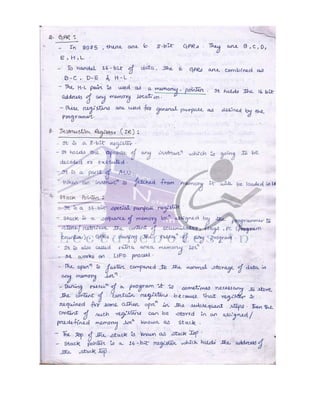 2. GPR :
- In 8085, there are 6 8-bit GPRs. They are B, C, D,
E, H, L
- To handel 16-bit of data, the 6 GPRs are combined as
B-C, D-E & H-L.
- The H-L pair is used as a memory pointer. It holds the 16 bit
address of any memory location.
- These registers are used for general purpose as defined by the
programmer.
3. Instruction Register (IR) :
- It is a 8-bit register
- It holds the opcode of any instrucn which is going to be
decoded or executed.
- It is a part of ALU
- When an instrucn is fetched from memory it will be loaded in IR
4. Stack Pointer :
- It is a 16-bit special purpose register
- Stack is a sequence of memory locn assigned by the programmer to
store/retrieve the content of accumulator, flags, PC (program
counter), GPRs during the execn of any program.
- It is also called extra area memory locn
- It works on LIFO process.
- The opern is faster compared to the normal storage of data in
any memory locn.
- During execn of a program it is sometimes necessary to store
the content of certain registers because that register is
required for some other opn in the subsequent steps. Then the
content of such registers can be stored in an assigned/
predefined memory locn known as stack.
- The top of the stack is known as stack top.
- Stack pointer is a 16-bit register which holds the address of
the stack top.